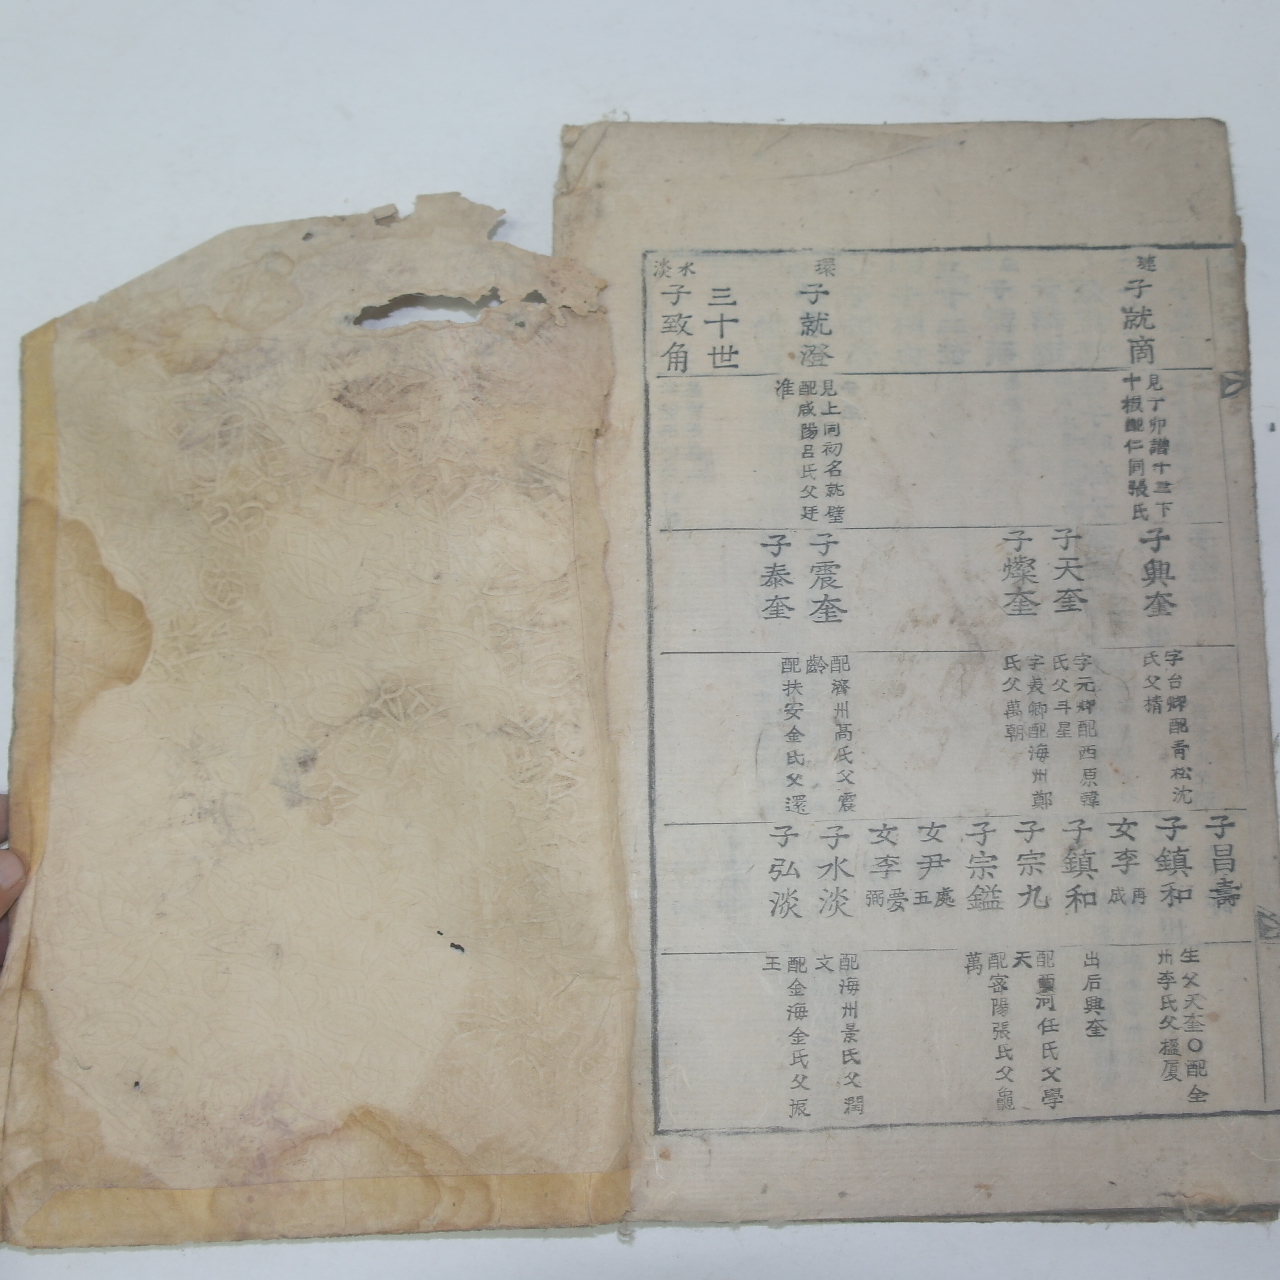 子就商
見丁卯譜十三下
十板配仁同張氏
環
子就澄
見上同初名就璧
配咸陽呂氏父廷
准
三十世
水
淡
子致角
子興奎
子天奎
子燦奎
子震奎
子泰奎
字台卿配青松沈
氏父
字元卿配西原韓
氏父斗星
字表卿配海州鄭
氏父萬朝
配濟州高氏父震
齡
配扶安金氏父還
子昌壽
子鎮和
女李再成
子鎮和
子宗九
子宗鎰
女尹處五
女李愛弼
子水淡
子弘淡
生父天奎〇配全
州李氏父榲厦
出后興奎
配 河任氏父學
天
配密陽張氏父龜
萬
配海州景氏父潤
文
配金海金氏父振
王